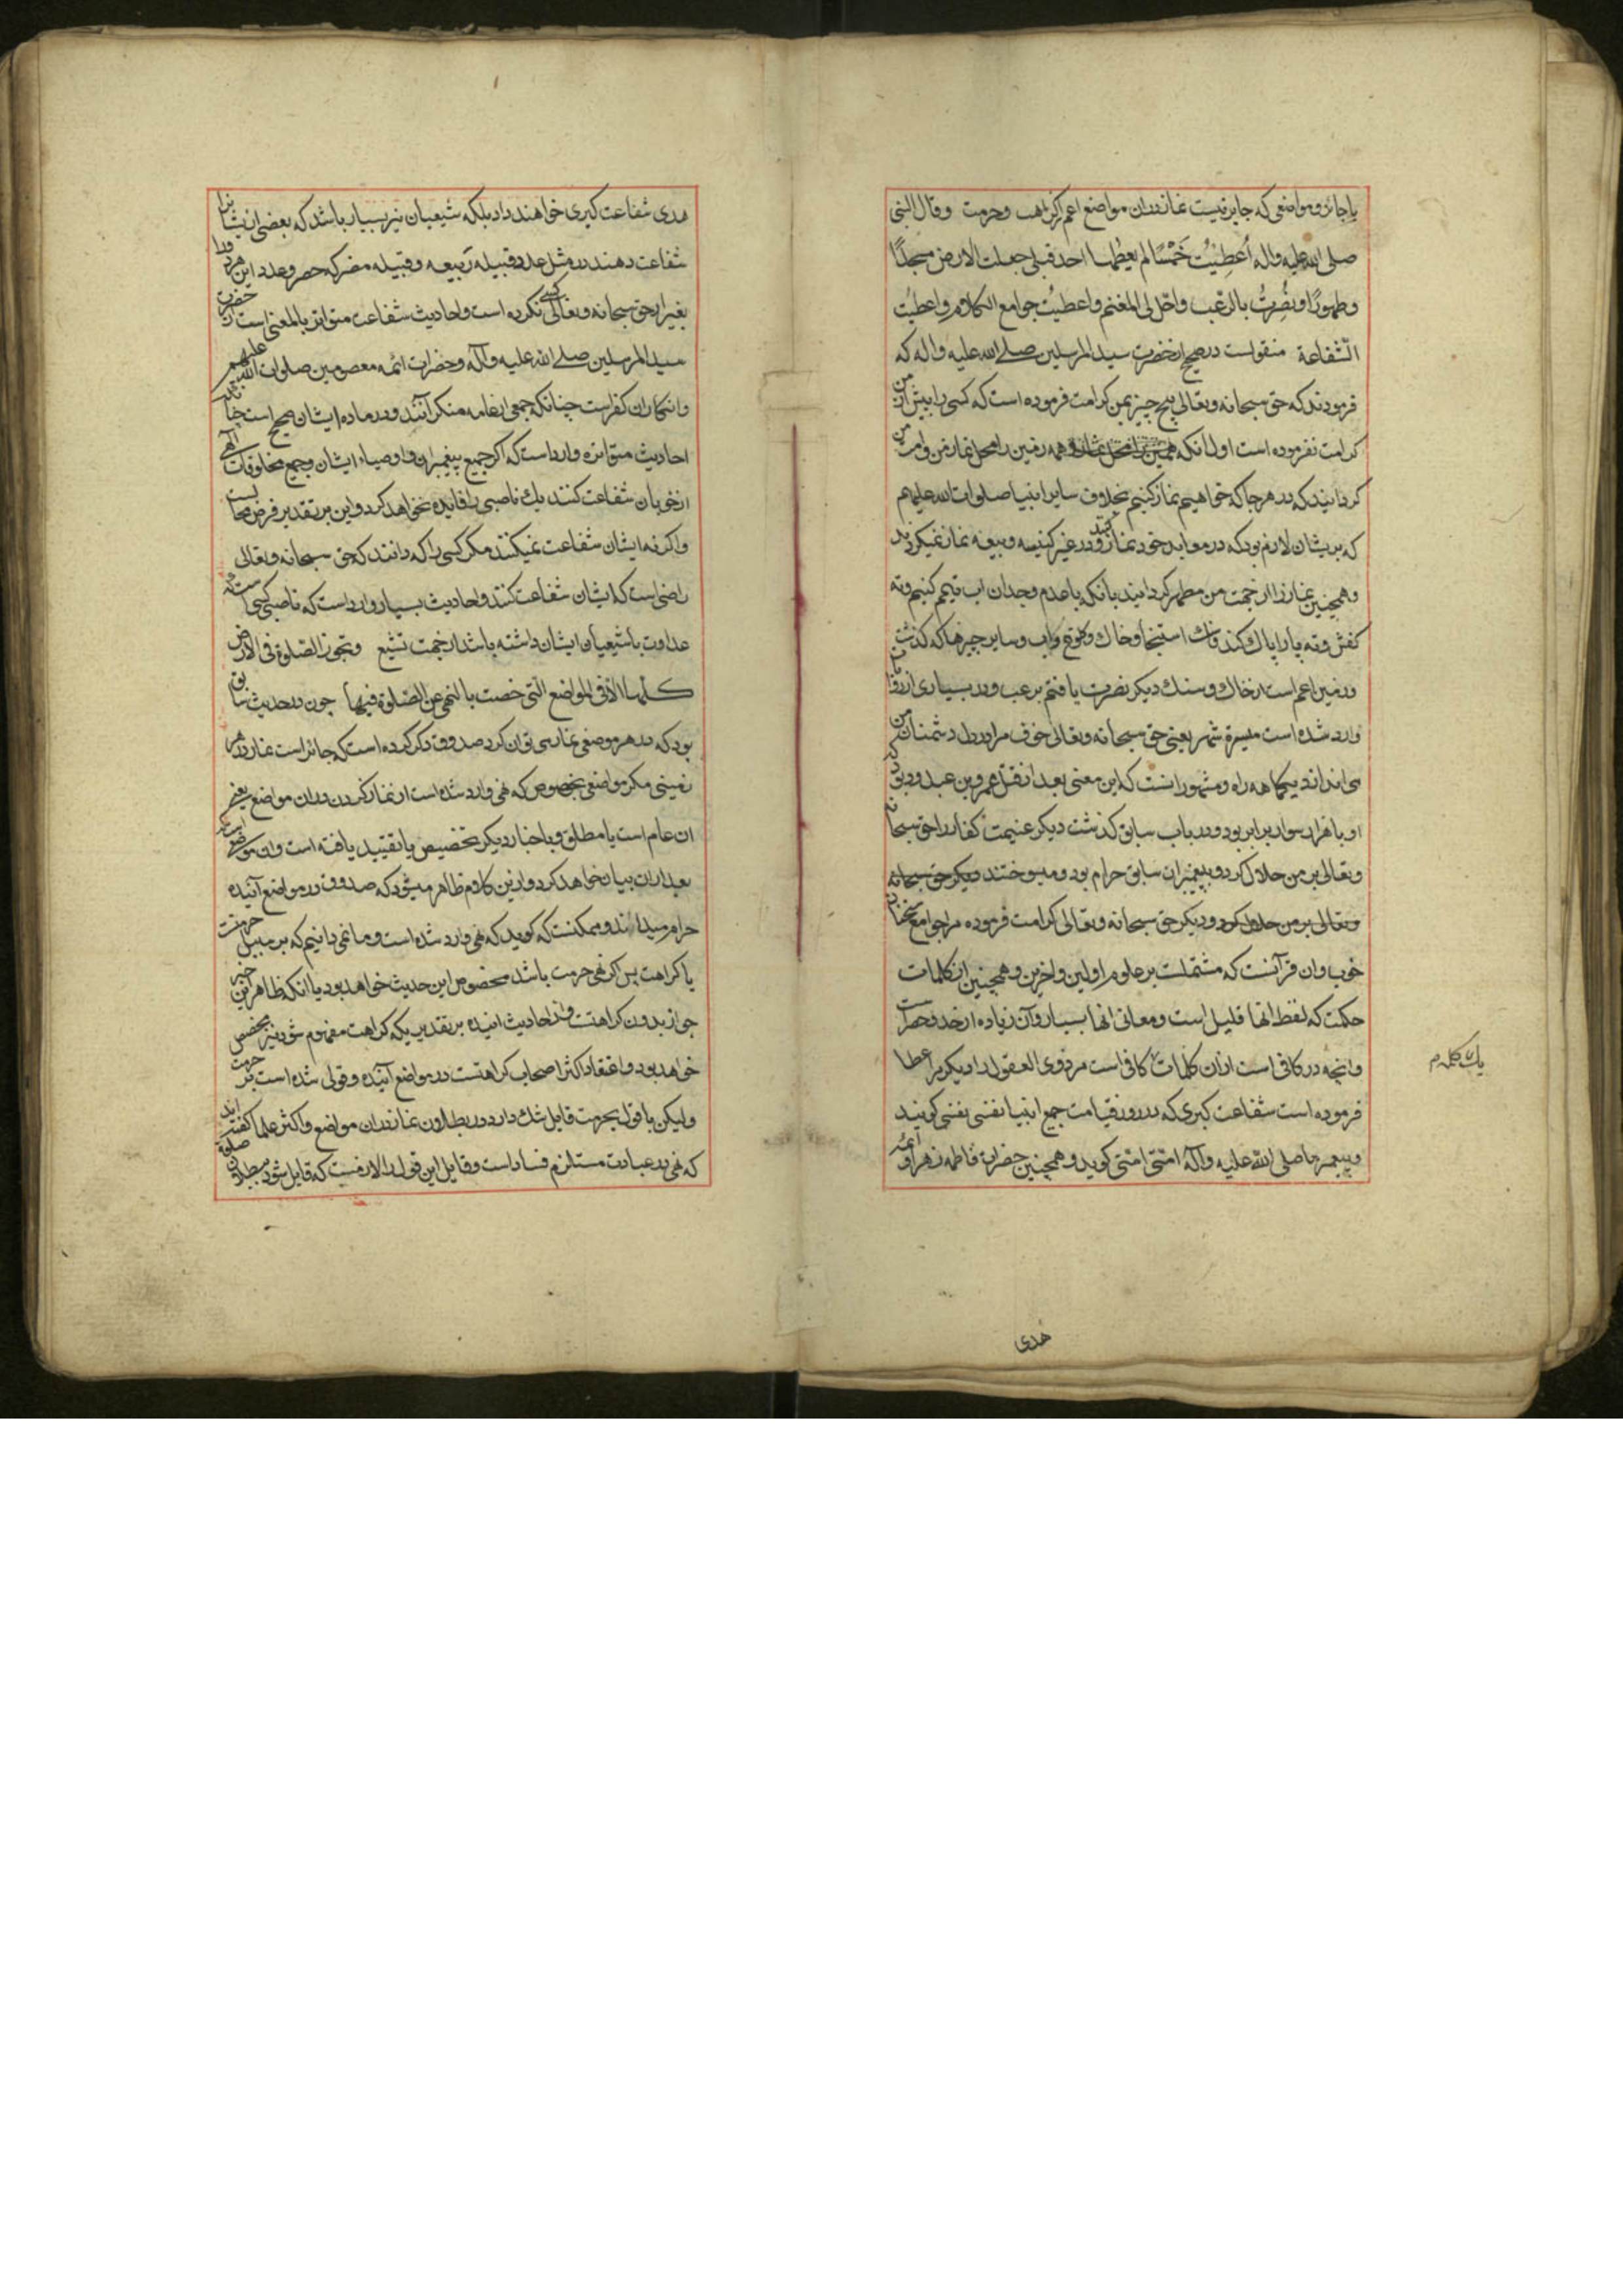 یا جائز و مواضعی که جایز نیست نماز دران مواضع اعم از کراهت و حرمت و قال النبی
صلی الله علیه واله اُعطِیْتُ خَمْسًا لم یعطها احد قبلی جعلت الارض مسجدًا
وطهورًا ونُصِرتُ بالرّعب واحّل لی المغنم واعطیتُ جوامع الکلام واعطیتُ
الشّفاعة منقولست در صحیح از حضرت سید المرسلین صلے الله علیه واله که
فرمودند که حق سبحانه وتعالی پنج چیز بمن کرامت فرموده است که کسی را پیش از من
کرامت نفرموده است اول انکه همه زمین را محل نماز من وامت من
کردانیدکه در هر جا که خواهیم نماز کنیم بخلاف سایر انبیا صلوات الله علیهم
که بریشان لازم بود که در معابد خود نماز کنند ودر غیر کنیسه و بیعه نماز نمیکردند
وهمچنین نماز را از جهت من مطهر کردانید بانکه با عدم وجدان اب تیمم کنیم وته
کفش وته پا را پاک کند وخاک استنجا وخاک وکلوخ واب وسایر چیزها که کذشت
وزمین اعم است از خاک وسنک دیکر نصرت یافتم برعب ودر بسیاری از روایات
وارد شده است مسیرة شهر یعنی حق سبحانه وتعالی خوف مرا در دل دشمنان من
می اندازد یکماهه راه ومشهور انست که این معنی بعد از قتل عمرو بن عبدود بود که
او با هزار سوار برابر بود ودر باب سابق کذشت دیکر غنیمت کفار را حق سبحانه
وتعالی بر من حلال کرد و بر پیغمبران سابق حرام بود و میسوختند دیکر حق سبحانه
وتعالی بر من حلال کرد ودیکر حق سبحانه وتعالی کرامت فرموده مرا جوامع سخنان
خوب وان قرآنست که مشتملست بر علوم اولین واخرین وهمچنین ان کلمات
حکمت که لفظ انها قلیل است ومعانی انها بسیار وآن زیاده از حد وحصر است
وانچه در کافی است ازان کلمات کافی است مر ذوی العقول را دیکر مرا عطا
فرموده است شفاعت کبری که در روز قیامت جمیع انبیا نفسی نفسی کویند
وپیغمبر ما صلی الله علیه وآله امتی امتی کوید وهمچنین حضرات فاطمه زهرا وائمه
یک کلمه م
هدی
هدی شفاعت کبری خواهند داد بلکه شیعیان نیز بسیار باشد که بعضی از یشانرا
شفاعت دهند در مثل عدد قبیله ربیعه وقبیله مضر که حصر وعدد این هر دو را
بغیر از حق سبحانه وتعالی کسی نکرده است واحادیث شفاعت متواتر بالمعنی است از حضرت
سید المرسلین صلے الله علیه وآله وحضرات ائمه معصومین صلوات الله علیهم
وانکار ان کفر است چنانکه جمعی از عامه منکر آنند ودر ماده ایشان صحیح است چنانکه
احادیث متواتره وارد است که اکر جمیع پیغمبران واوصیاء ایشان وجمیع مخلوقات الهی
از خوبان شفاعت کنند یک ناصبی را فائده نخواهد کرد واین بر تقدیر فرض محالست
واکرنه ایشان شفاعت نمیکنند مکر کسی را که دانند که حق سبحانه وتعالی
راضی است که ایشان شفاعت کنند واحادیث بسیار وارد است که ناصبی کسی است که
عداوت با شیعیان ایشان داشته باشد از جهت تشیع وتجوز الصلوة فی الارض
کلها الا فی المواضع الّتی خصت بالنهی عن الصّلوة فیها چون در حدیث سابق
بود که در هر موضعی نماز می توان کرد صدوق ذکر کرده است که جائز است نماز در هر
زمینی مکر مواضعی بخصوص که نهی وارد شده است از نماز کردن دران مواضع یعنی
ان عام است یا مطلق وباخبار دیکر تخصیص یا تقیید یافته است وان مواضع را
بعد ازان بیان خواهد کرد وازین کلام ظاهر میشود که صدوق در مواضع آینده
حرام میداند وممکنست که کوید که نهی وارد شده است وما نمی دانیم که بر سبیل حرمتست
یا کراهت پس اکر نهی حرمت باشد مخصوص این حدیث خواهد بود یا انکه ظاهر این خبر
جواز بدون کراهتست واز احادیث اینده بر تقدیریکه کراهت مفهوم شود نیز مخصص
خواهد بود واعتقاد اکثر اصحاب کراهتست در مواضع آینده وقولی شده است بر حرمت
ولیکن با قول بحرمت قایل شک دارد در بطلان نماز دران مواضع واکثر علما کفته اند
که نهی در عبادت مستلزم فساد است وقایل این قول را لازمست که قایل شود ببطلان صلوة